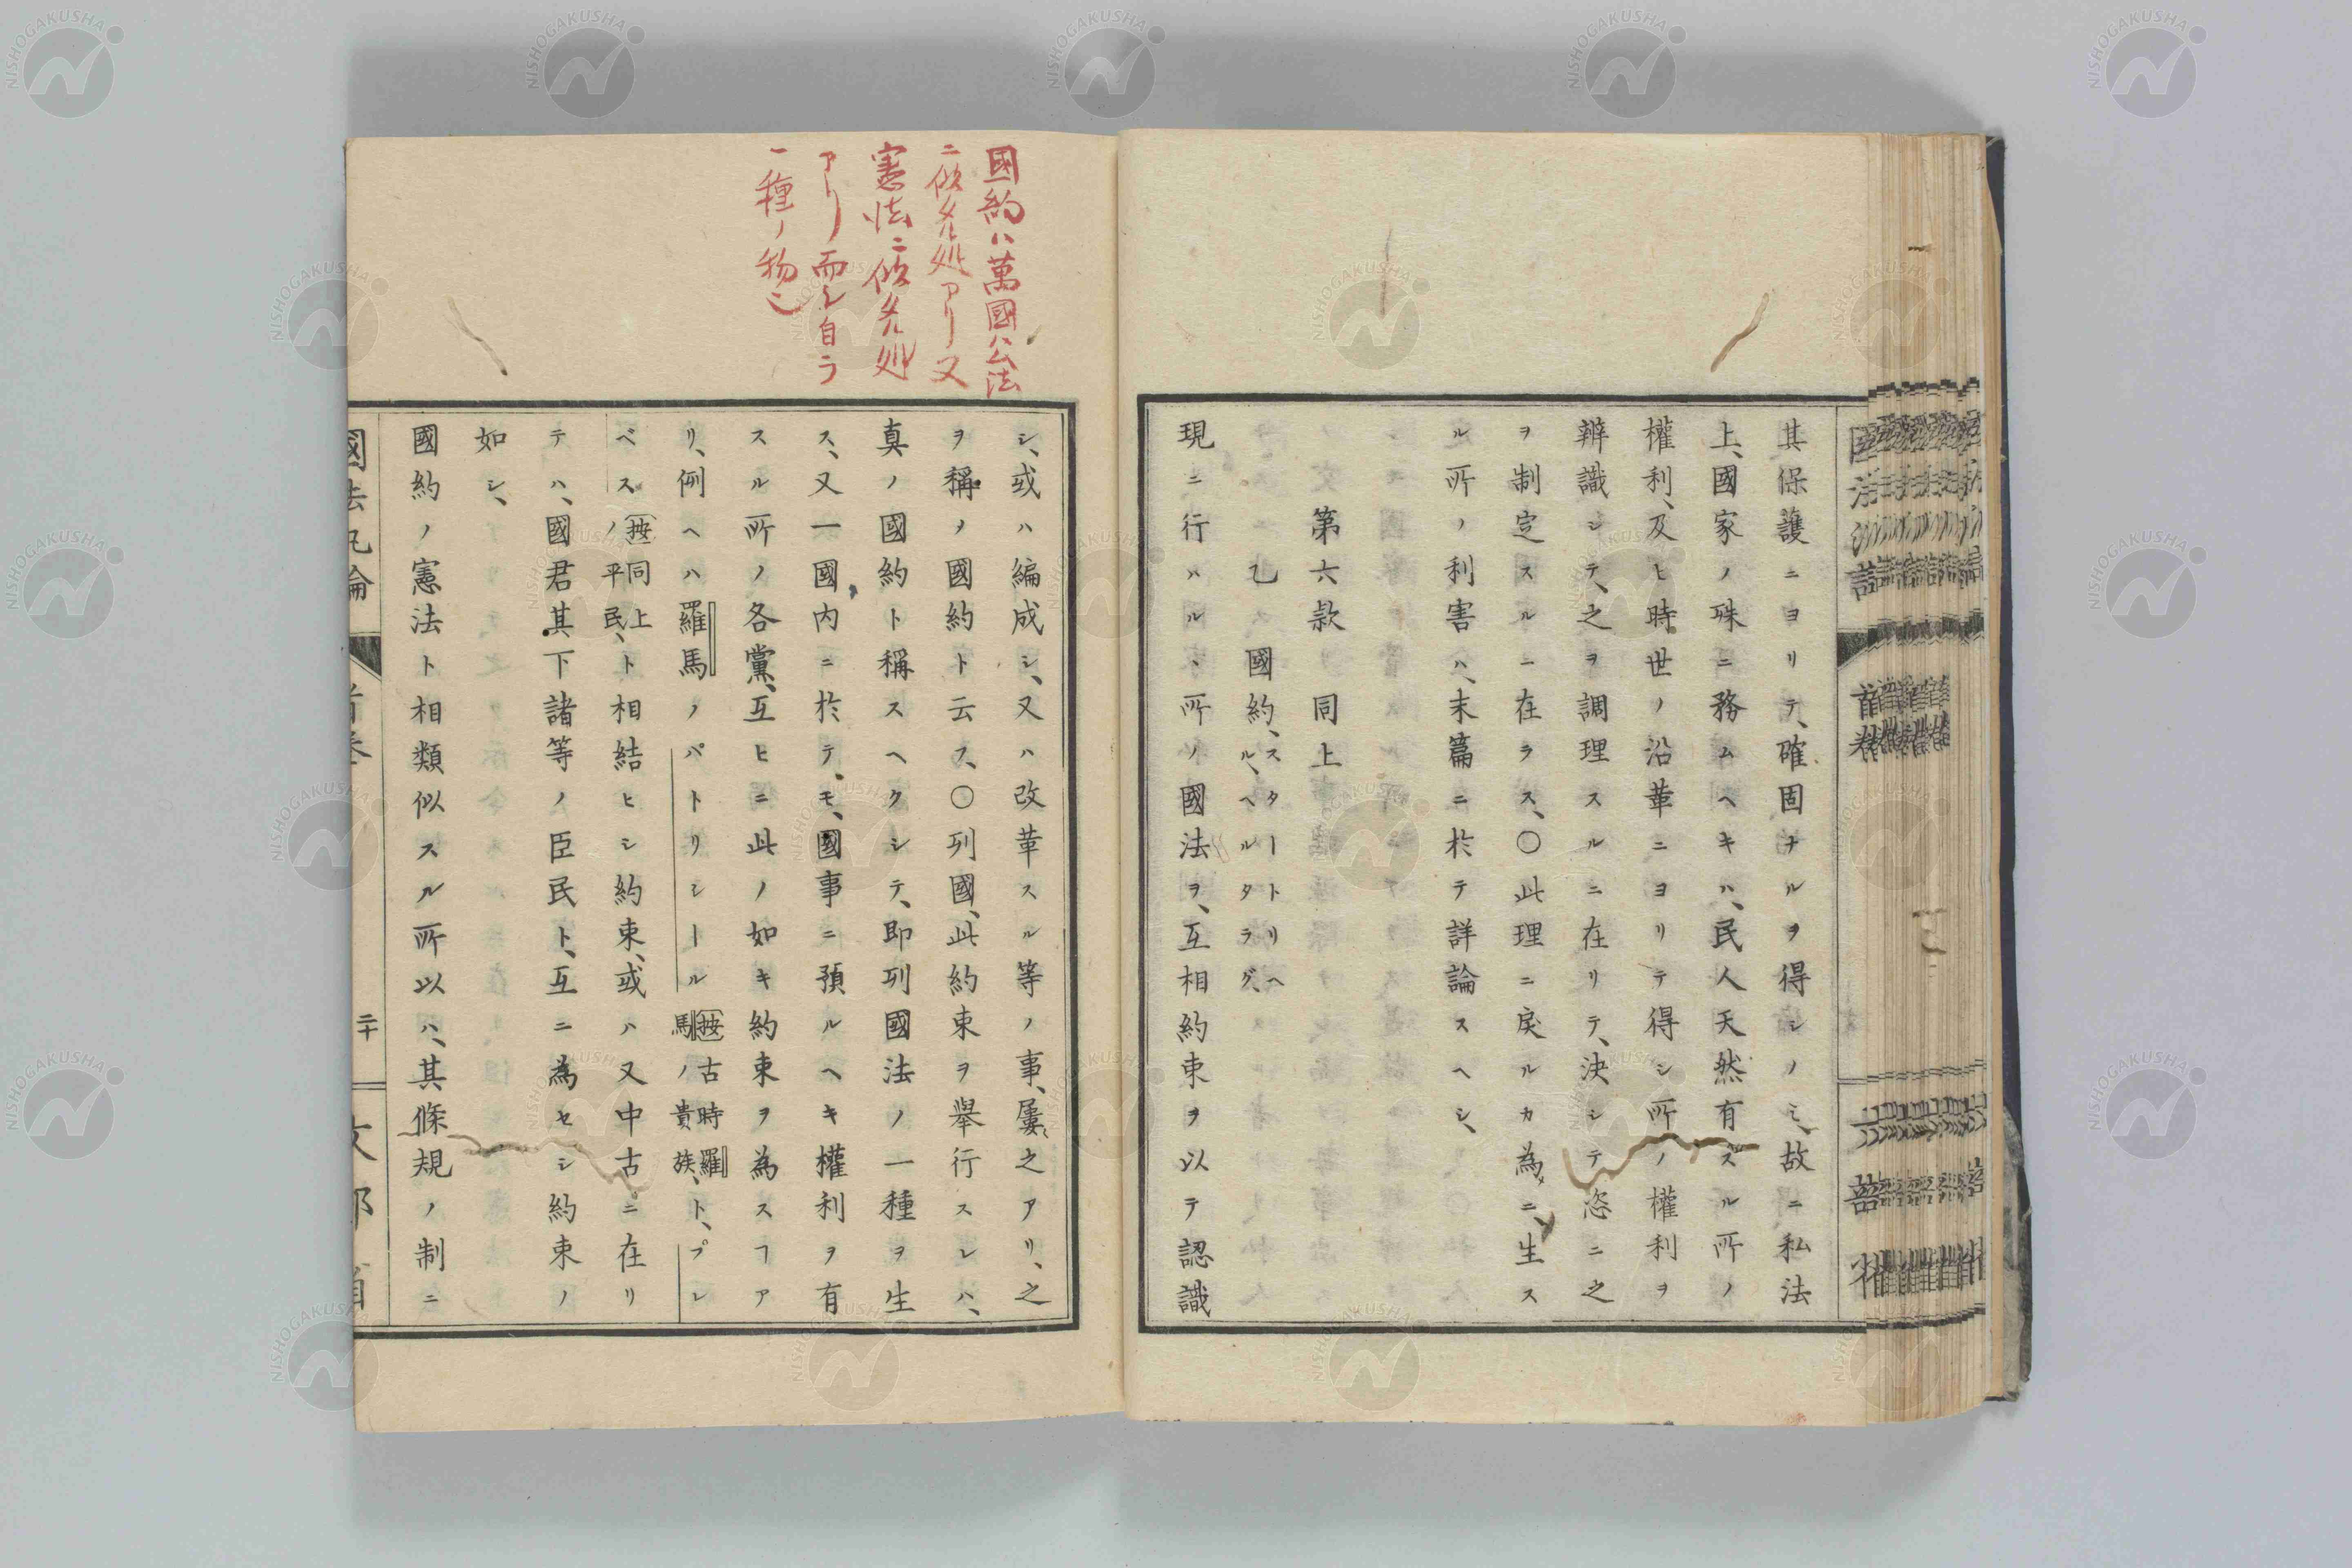 其保護ニヨリテ、確固ナルヲ得シノミ、故ニ私法
上、國家ノ殊ニ務ムヘキハ、民人天然有スル所ノ
權利、及ヒ時世ノ沿革ニヨリテ得シ所ノ權利ヲ
辨識シテ、之ヲ調理スルニ在リテ、決シテ恣ニ之
ヲ制定スルニ在ラス、〇此理ニ戻ルカ為ニ、生ス
ル所ノ利害ハ、末篇ニ於テ詳論スヘシ、
第六款 同上
乙 國約、スタートリヘ
ル、ヘルタラグ、
現ニ行ハルヽ所ノ國法ヲ、互相約束ヲ以テ認識
國約ハ萬國公法
ニ似タル処アリ又
憲法ニ似タル処
アリ而シ自ラ
一種ノ物也
シ、或ハ編成シ、又ハ改革スル等ノ事、屢之アリ、之
ヲ稱ノ國約ト云フ、〇列國、此約束ヲ舉行スレハ、
真ノ國約ト稱スヘクシテ、即列國法ノ一種ヲ生
ス、又一國内ニ於テモ、國事ニ預ルヘキ權利ヲ有
スル所ノ各黨、互ヒニ此ノ如キ約束ヲ為スヿア
リ、例ヘハ羅馬ノパトリシール按古時羅馬ノ貴族、ト、プレ
ベス按同上ノ平民、ト相結ヒシ約束、或ハ又中古ニ在リ
テハ、國君其下諸等ノ臣民ト、互ニ為セシ約束ノ
如シ、
國約ノ憲法ト相類似スル所以ハ、其條規ノ制ニ
國法汎論 首卷 二十 文部省